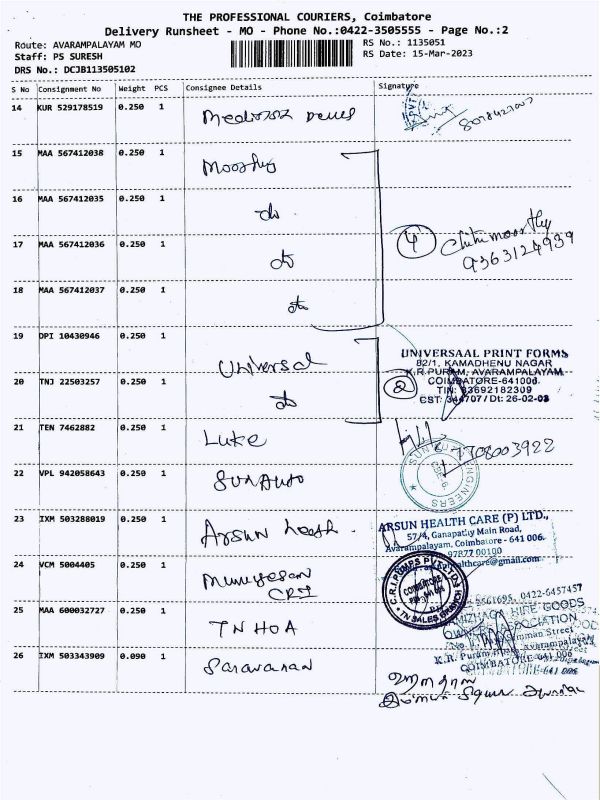 THE PROFESSIONAL COURIERS, Coimbatore
Delivery Runsheet - MO - Phone No.:0422-3505555 - Page No.:2
Route: AVARAMPALAYAM MO
RS No.: 1135051
Staff: PS SURESH
RS Date: 15-Mar-2023
DRS No.: DCJB113505102
S No Consignment No Weight PCS Consignee Details Signature
14 KUR 529178519 0.250 1
15 MAA 567412038 0.250 1 Moorthy
16 MAA 567412035 0.250 1 do
17 MAA 567412036 0.250 1 do
4 Chitimoorthy
9363124939
18 MAA 567412037 0.250 1 do
19 DPI 10430946 0.250 1 Universal
UNIVERSAAL PRINT FORMS
82/1, KAMADHENU NAGAR
K.R.PURAM, AVARAMPALAYAM,
COIMBATORE-641006.
TIN: 33692182309
CST: 344707/Dt: 26-02-03
20 TNJ 22503257 0.250 1 do 2
21 TEN 7462882 0.250 1 Luke
7708003922
22 VPL 942058643 0.250 1 SUNAUTO
SUN AUTO ENGINEERS
23 IXM 503288019 0.250 1 Arsun heath.
ARSUN HEALTH CARE (P) LTD.,
57/4, Ganapathy Main Road,
Avarampalayam, Coimbatore - 641 006.
97877 00100
healthcare@gmail.com
24 VCM 5004405 0.250 1 Murugesan
CRI
C.R.I PUMPS PVT LTD
COIMBATORE
TN SALES BRANCH
25 MAA 600032727 0.250 1 TNHOA
0422-6457457
HIRE GOODS
OWNERS ASSOCIATION
Amman Street
K.R. Puram Avarampalayam
COIMBATORE-641 006
26 IXM 503343909 0.090 1 Saravanan